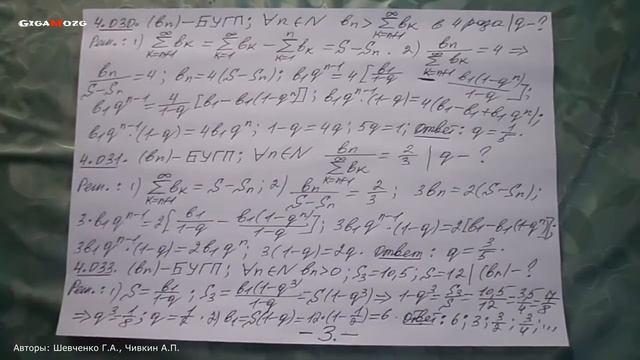 GIGAMOZG
4.030. (bn)-БУГП; ∀n∈N bn > ∑_{k=n+1}^∞ bk в 4 раза | q-?
Реш.: 1) ∑_{k=n+1}^∞ bk = ∑_{k=1}^∞ bk - ∑_{k=1}^n bk = S-Sn. 2) bn/∑_{k=n+1}^∞ bk = 4 ⇒
bn/(S-Sn) = 4; bn=4(S-Sn); b1q^{n-1}=4[b1/(1-q) - b1(1-q^n)/(1-q)];
b1q^{n-1}=4/(1-q)[b1-b1(1-q^n)]; b1q^{n-1}·(1-q)=4(b1-b1+b1q^n);
b1q^{n-1}(1-q)=4b1q^n; 1-q=4q; 5q=1; Ответ: q=1/5.
4.031. (bn)-БУГП; ∀n∈N bn/∑_{k=n+1}^∞ bk = 2/3 | q-?
Реш.: 1) ∑_{k=n+1}^∞ bk = S-Sn; 2) bn/(S-Sn) = 2/3; 3bn=2(S-Sn);
3·b1q^{n-1}=2[b1/(1-q) - b1(1-q^n)/(1-q)]; 3b1q^{n-1}·(1-q)=2[b1-b1(1-q^n)];
3b1q^{n-1}·(1-q)=2b1q^n; 3(1-q)=2q. Ответ: q=3/5.
4.033. (bn)-БУГП; ∀n∈N bn>0; S3=10,5; S=12 | (bn)-?
Реш.: 1) S=b1/(1-q); S3=b1(1-q^3)/(1-q)=S(1-q^3) ⇒ 1-q^3=S3/S=10,5/12=3,5/4=7/8
⇒ q^3=1/8; q=1/2. 2) b1=S(1-q)=12·(1-1/2)=6. Ответ: 6; 3; 3/2; 3/4; ...
-3.-
Авторы: Шевченко Г.А., Чивкин А.П.